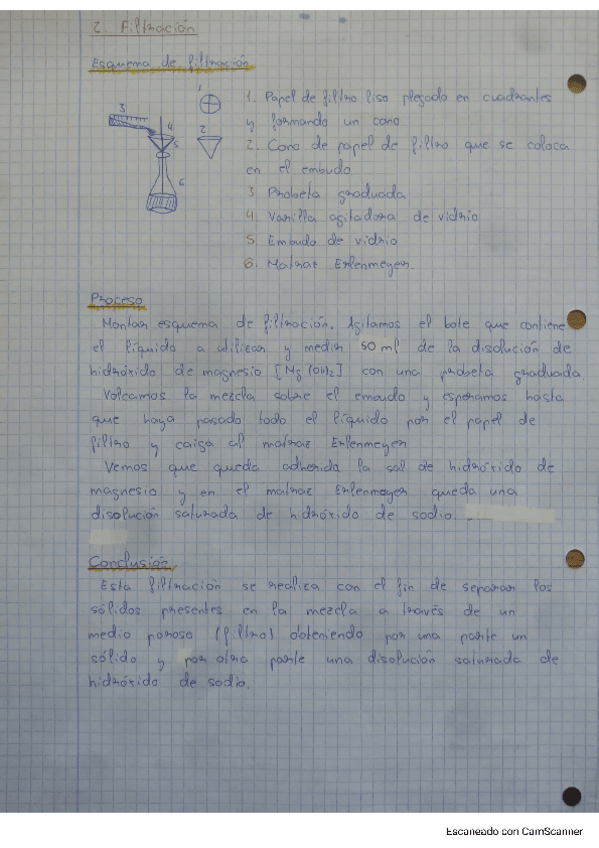 2. Filtración
Esquema de filtración
1
3
4
2
5
6
1. Papel de filtro liso plegado en cuadrantes
y formando un cono
2. Cono de papel de filtro que se coloca
en el embudo
3 Probeta graduada
4 Varilla agitadora de vidrio
5 Embudo de vidrio
6. Matraz Erlenmeyer.
Proceso
Montar esquema de filtración. Agitamos el bote que contiene
el líquido a utilizar y medir 50 ml de la disolución de
hidróxido de magnesio [Mg(OH)2] con una probeta graduada.
Volcamos la mezcla sobre el emudo y esperamos hasta
que haya pasado todo el líquido por el papel de
filtro y caiga al matraz Erlenmeyer
Vemos que queda adherida la sal de hidróxido de
magnesio y en el matraz Erlenmeyer queda una
disolución saturada de hidróxido de sodio.
Conclusión
Esta filtración se realiza con el fin de separar los
sólidos presentes en la mezcla a través de un
medio poroso (filtro) obteniendo por una parte un
sólido y por otra parte una disolución saturada de
hidróxido de sodio.
Escaneado con CamScanner